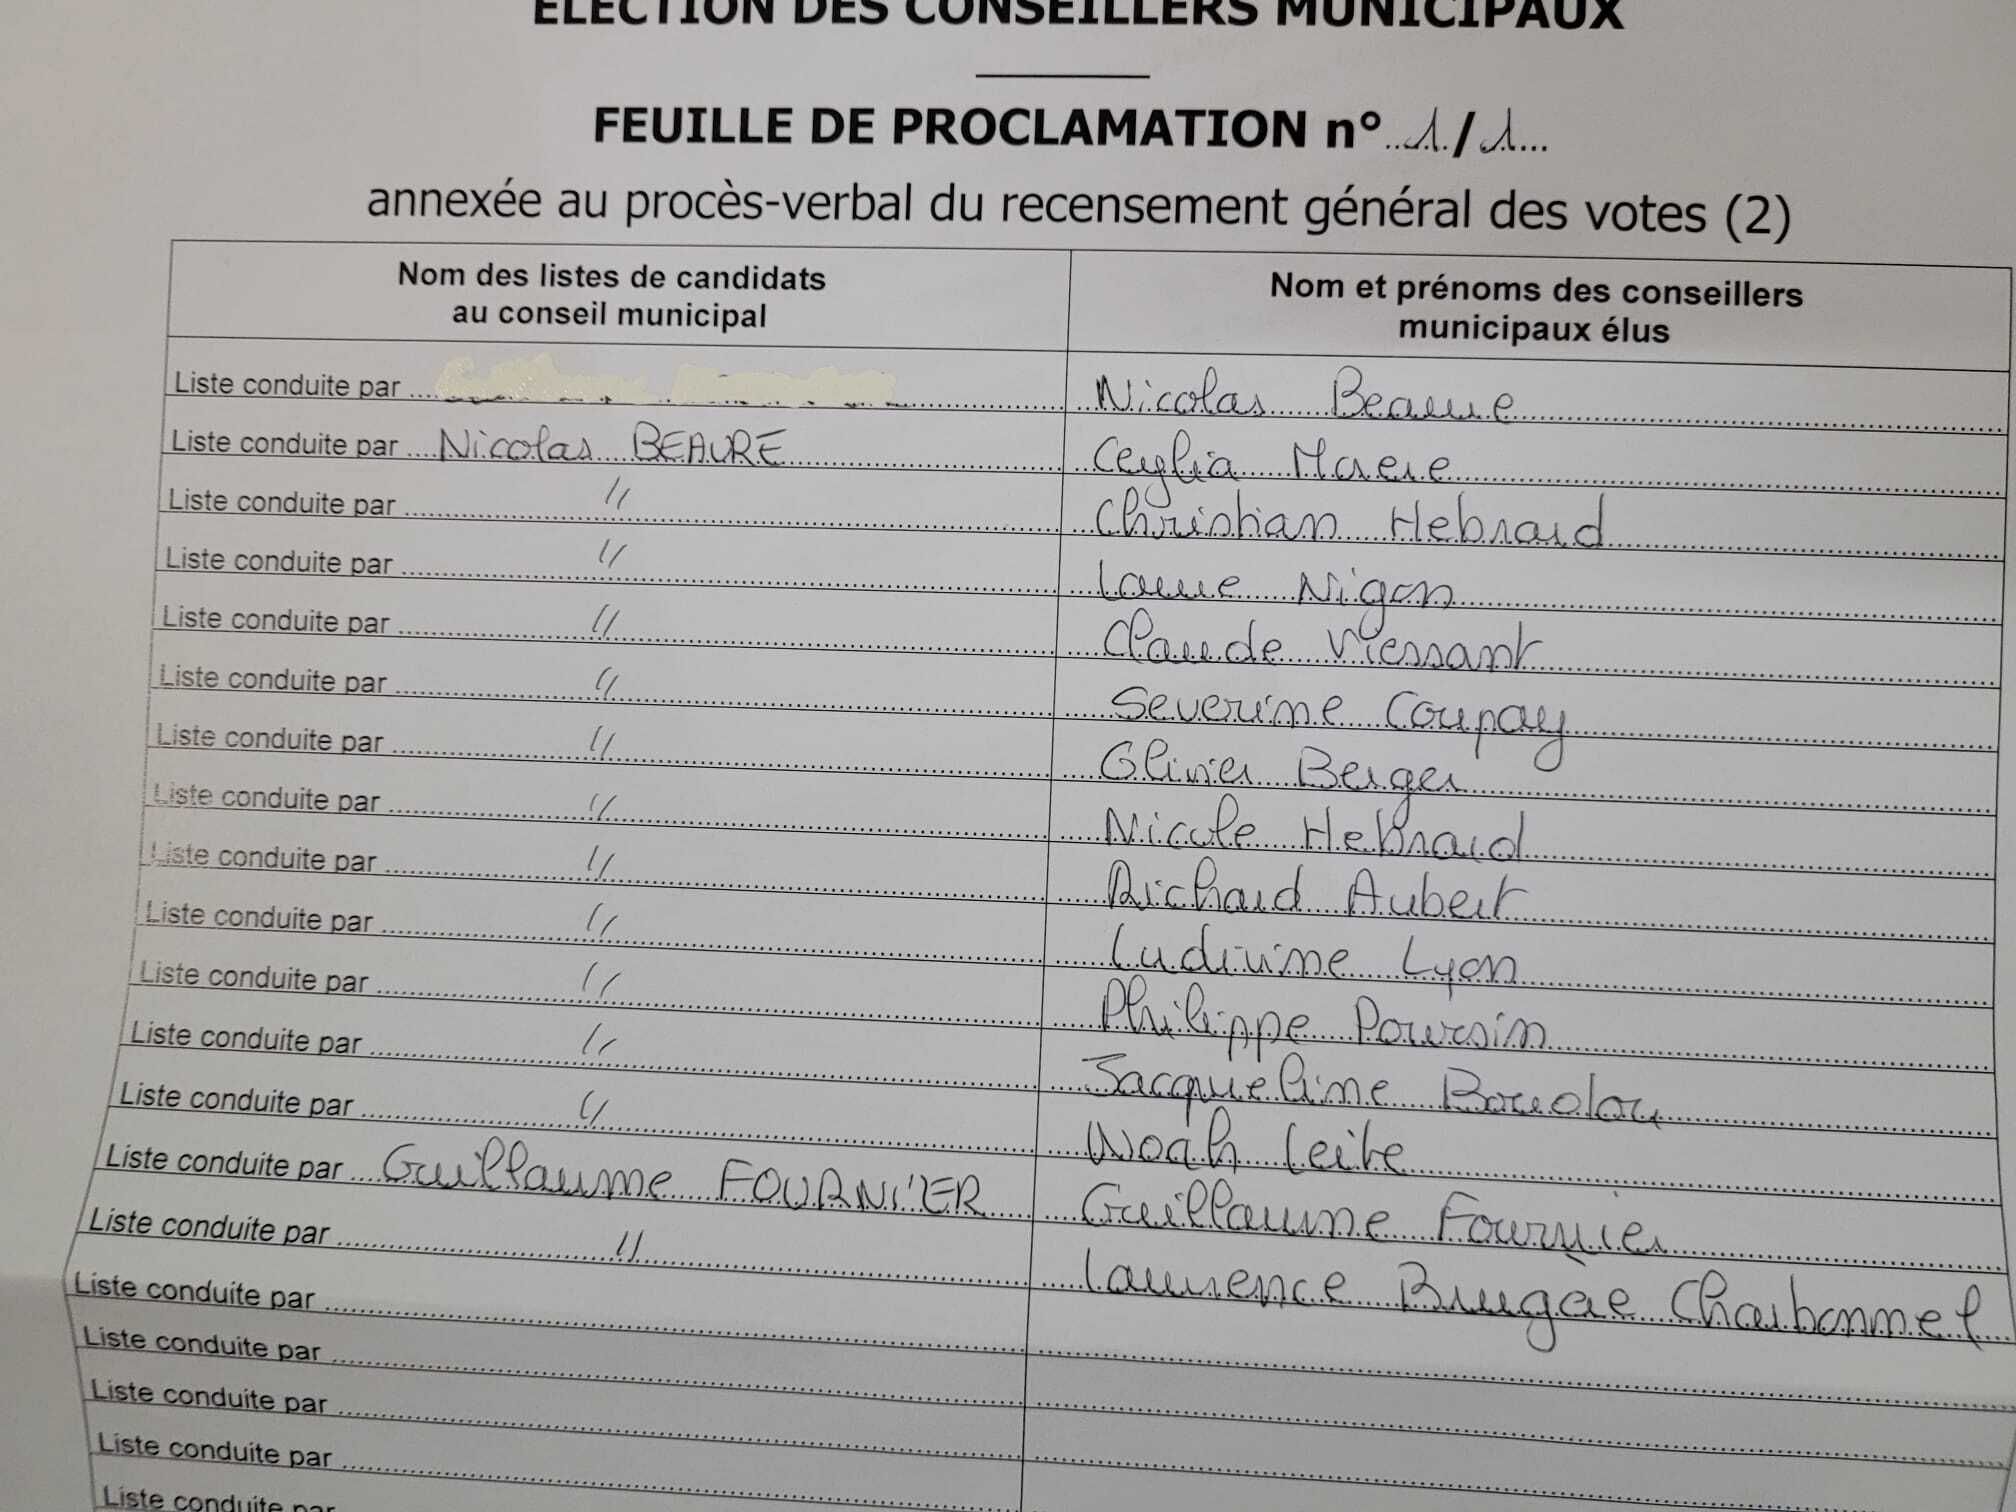 ÉLECTION DES CONSEILLERS MUNICIPAUX
FEUILLE DE PROCLAMATION n° 1/1
annexée au procès-verbal du recensement général des votes (2)
Nom des listes de candidats
au conseil municipal
Nom et prénoms des conseillers
municipaux élus
Liste conduite par
Nicolas Beaure
Liste conduite par Nicolas BEAURE
Ceylia
Liste conduite par "
Christian Hebrard
Liste conduite par "
Laure Nigon
Liste conduite par "
Claude Viessant
Liste conduite par "
Severine Coupay
Liste conduite par "
Olivier Berger
Liste conduite par "
Nicole Hebrard
Liste conduite par "
Richard Aubert
Liste conduite par "
Ludivine Lyon
Liste conduite par "
Philippe Poursin
Liste conduite par "
Jacqueline
Liste conduite par "
Noah Leite
Liste conduite par Guillaume FOURNIER
Guillaume Fournier
Liste conduite par "
Laurence Charbonnel
Liste conduite par
Liste conduite par
Liste conduite par
Liste conduite par
Liste conduite par